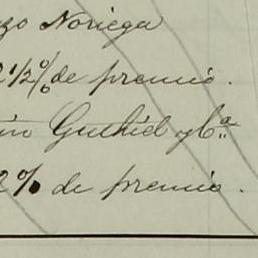 zo Noriega
2 1/2 % de premio.
in Guthiel y Cª
2 % de premio.